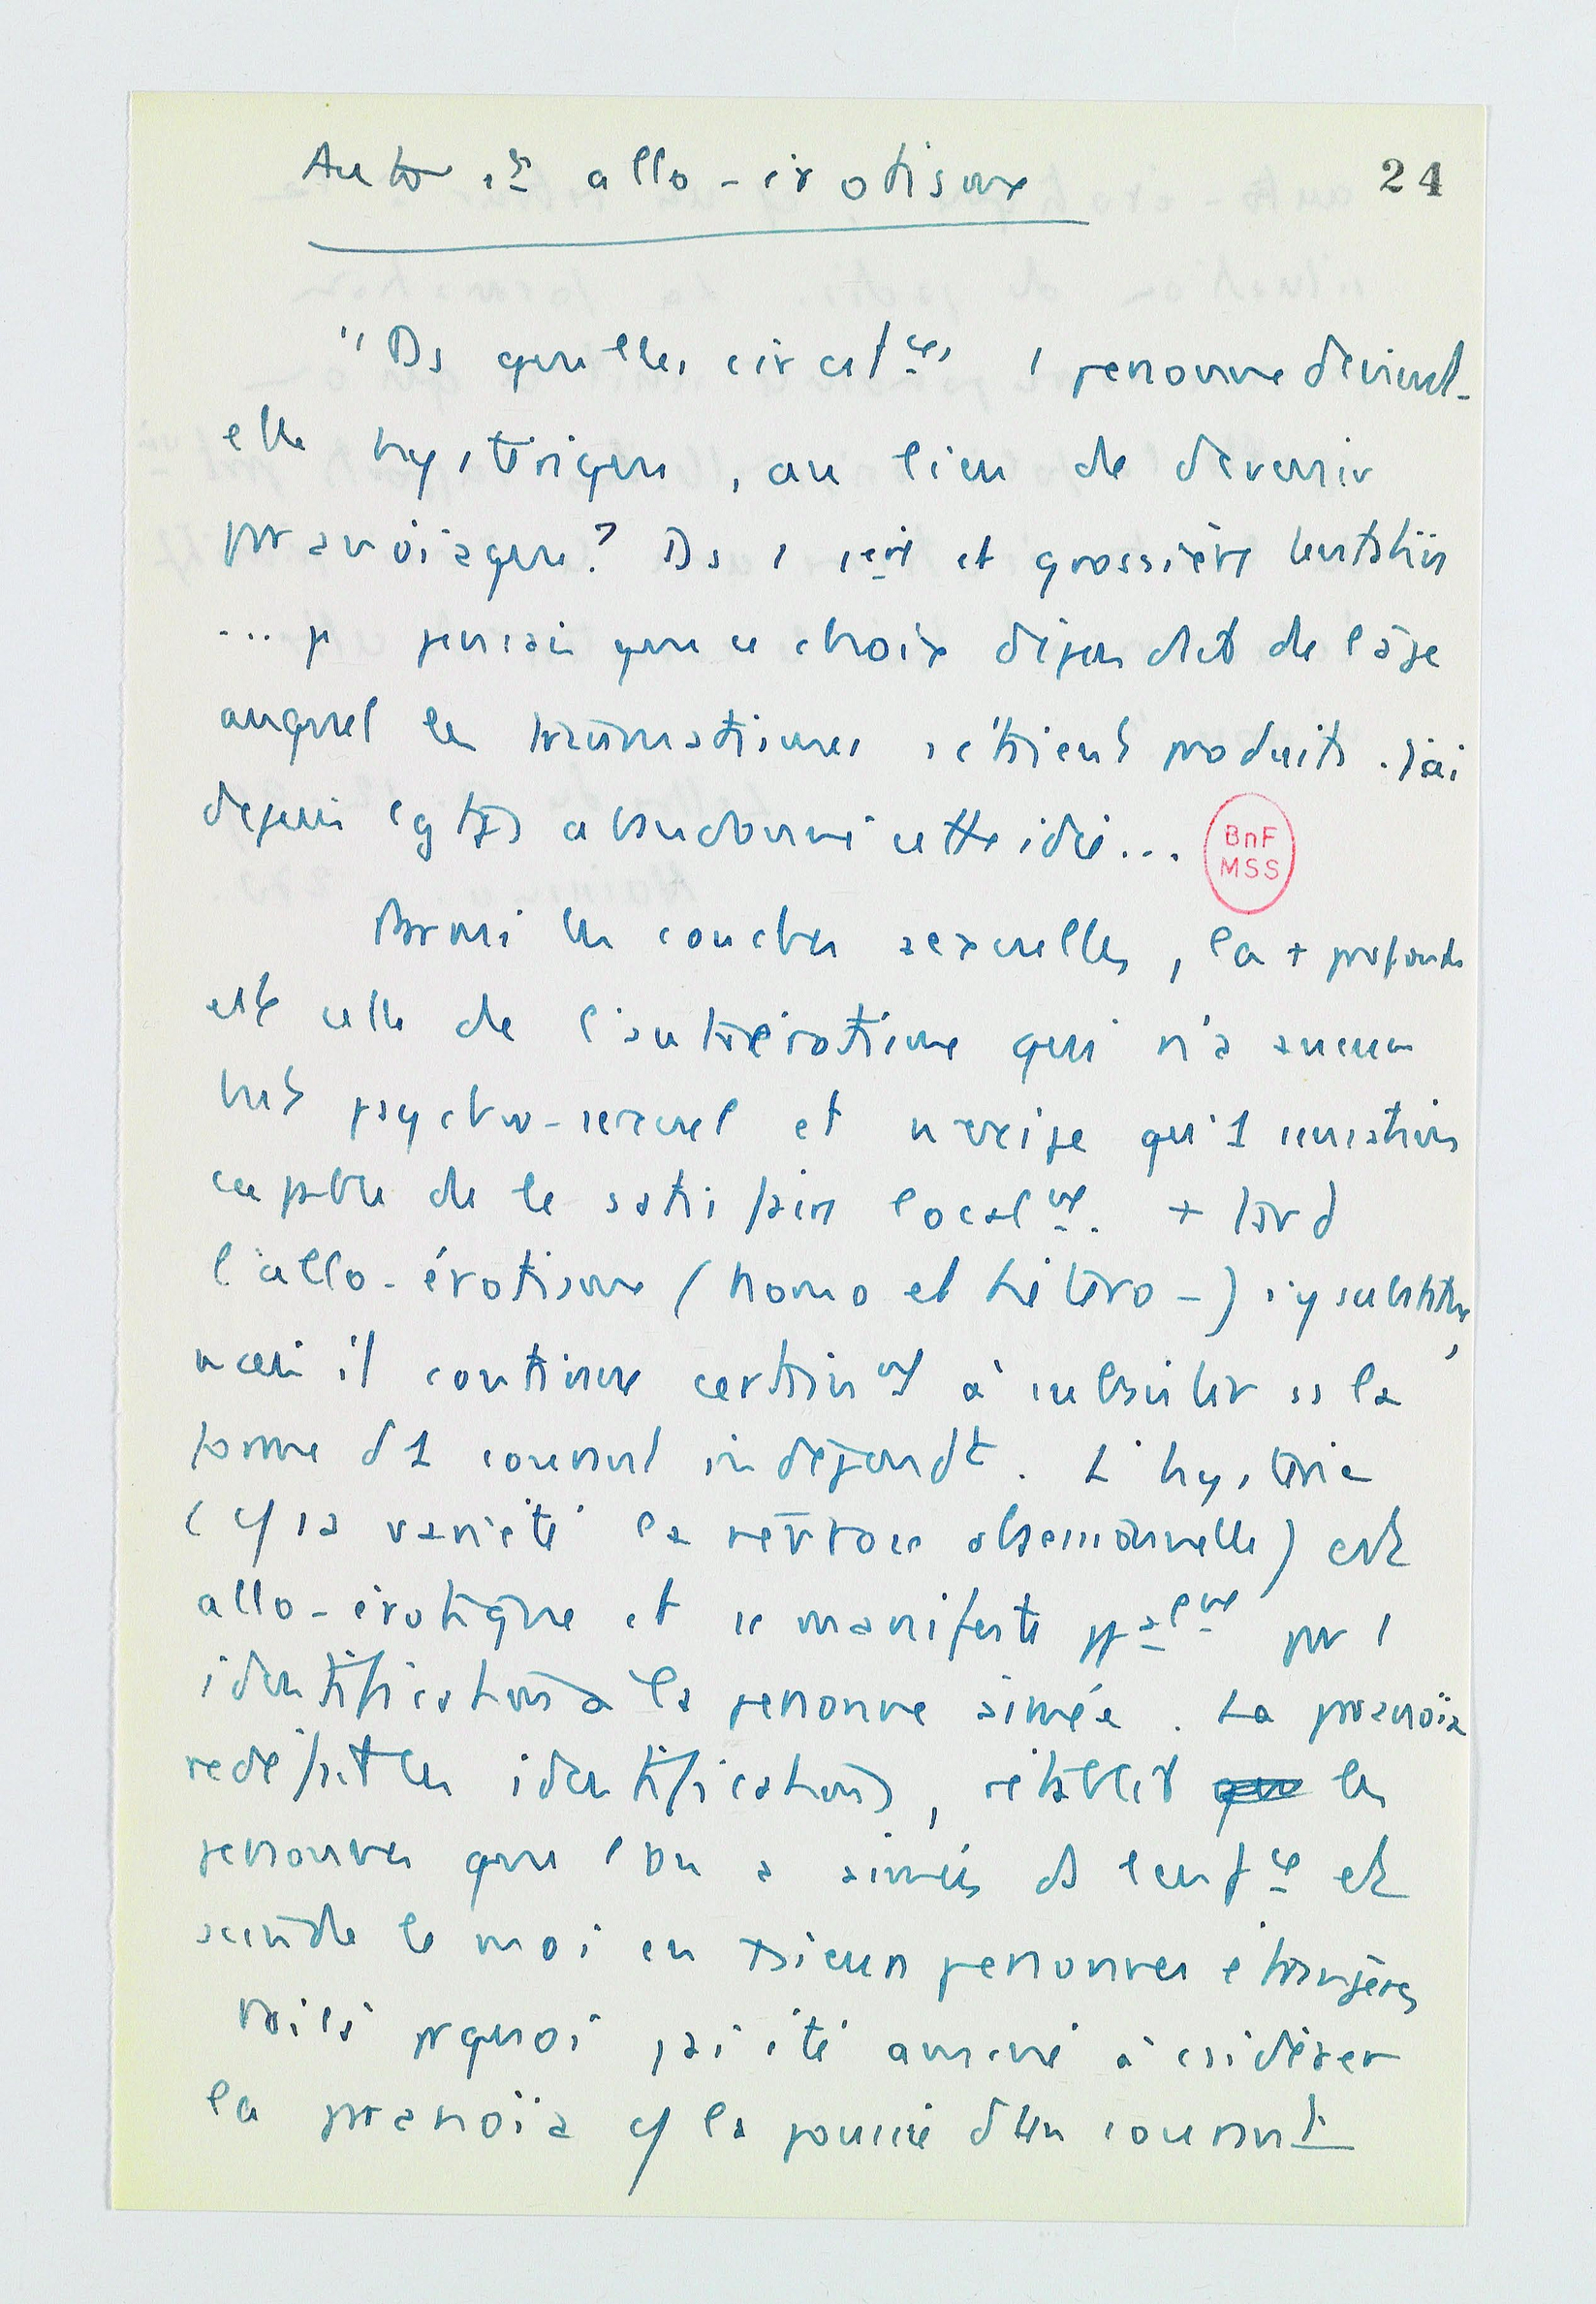 Auto et allo-érotisme
24
"Ds quelles circstces 1 personne devient-
elle hystérique, au lieu de devenir
paranoïaque? Ds 1 1ère et grossière tentative
... je pensais que ce choix dépendait de l'âge
auquel les traumatismes s'étaient produits. J'ai
depuis lgtps abandonné cette idée...
BnF
MSS
Parmi les couches sexuelles, la + profonde
est celle de l'autoérotisme qui n'a aucun
but psycho-sexuel et n'exige qu'1 sensation
capable de le satisfaire localmt. + tard
l'allo-érotisme (homo et hétéro-) s'y substitue,
mais il continue certainmt à subsister ss la
forme d'1 courant indépendt. L'hystérie
(et sa variété la névrose obsessionnelle) est
allo-érotique et se manifeste ppalmt par 1
identification à la personne aimée. La paranoïa
redéfait les identifications, rétablit les
personnes que l'on a aimées ds l'enfce et
scinde le moi en plusieurs personnes étrangères
Voilà pquoi j'ai été amené à csidérer
la paranoïa cf la poussée d'un courant